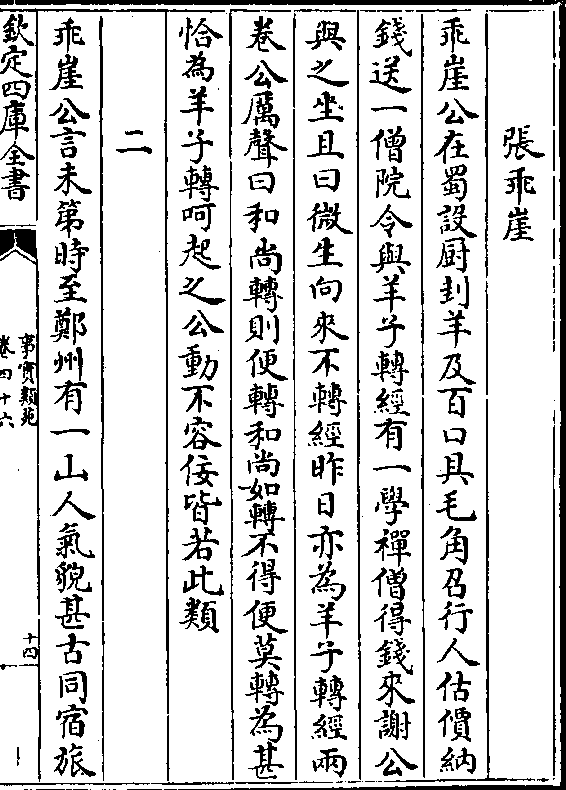 張乖崖
乖崖公在蜀設厨刲羊及百口具毛角召行人估價納
錢送一僧院令與羊子轉經有一學禪僧得錢來謝公
與之坐且曰微生向來不轉經昨日亦為羊子轉經兩
卷公厲聲曰和尚轉則便轉和尚如轉不得便莫轉為甚
恰為羊子轉呵起之公動不容佞皆若此類
二
乖崖公言未第時至鄭州有一山人氣貌甚古同宿旅
欽定四庫全書
事實類苑
卷四十六
十四